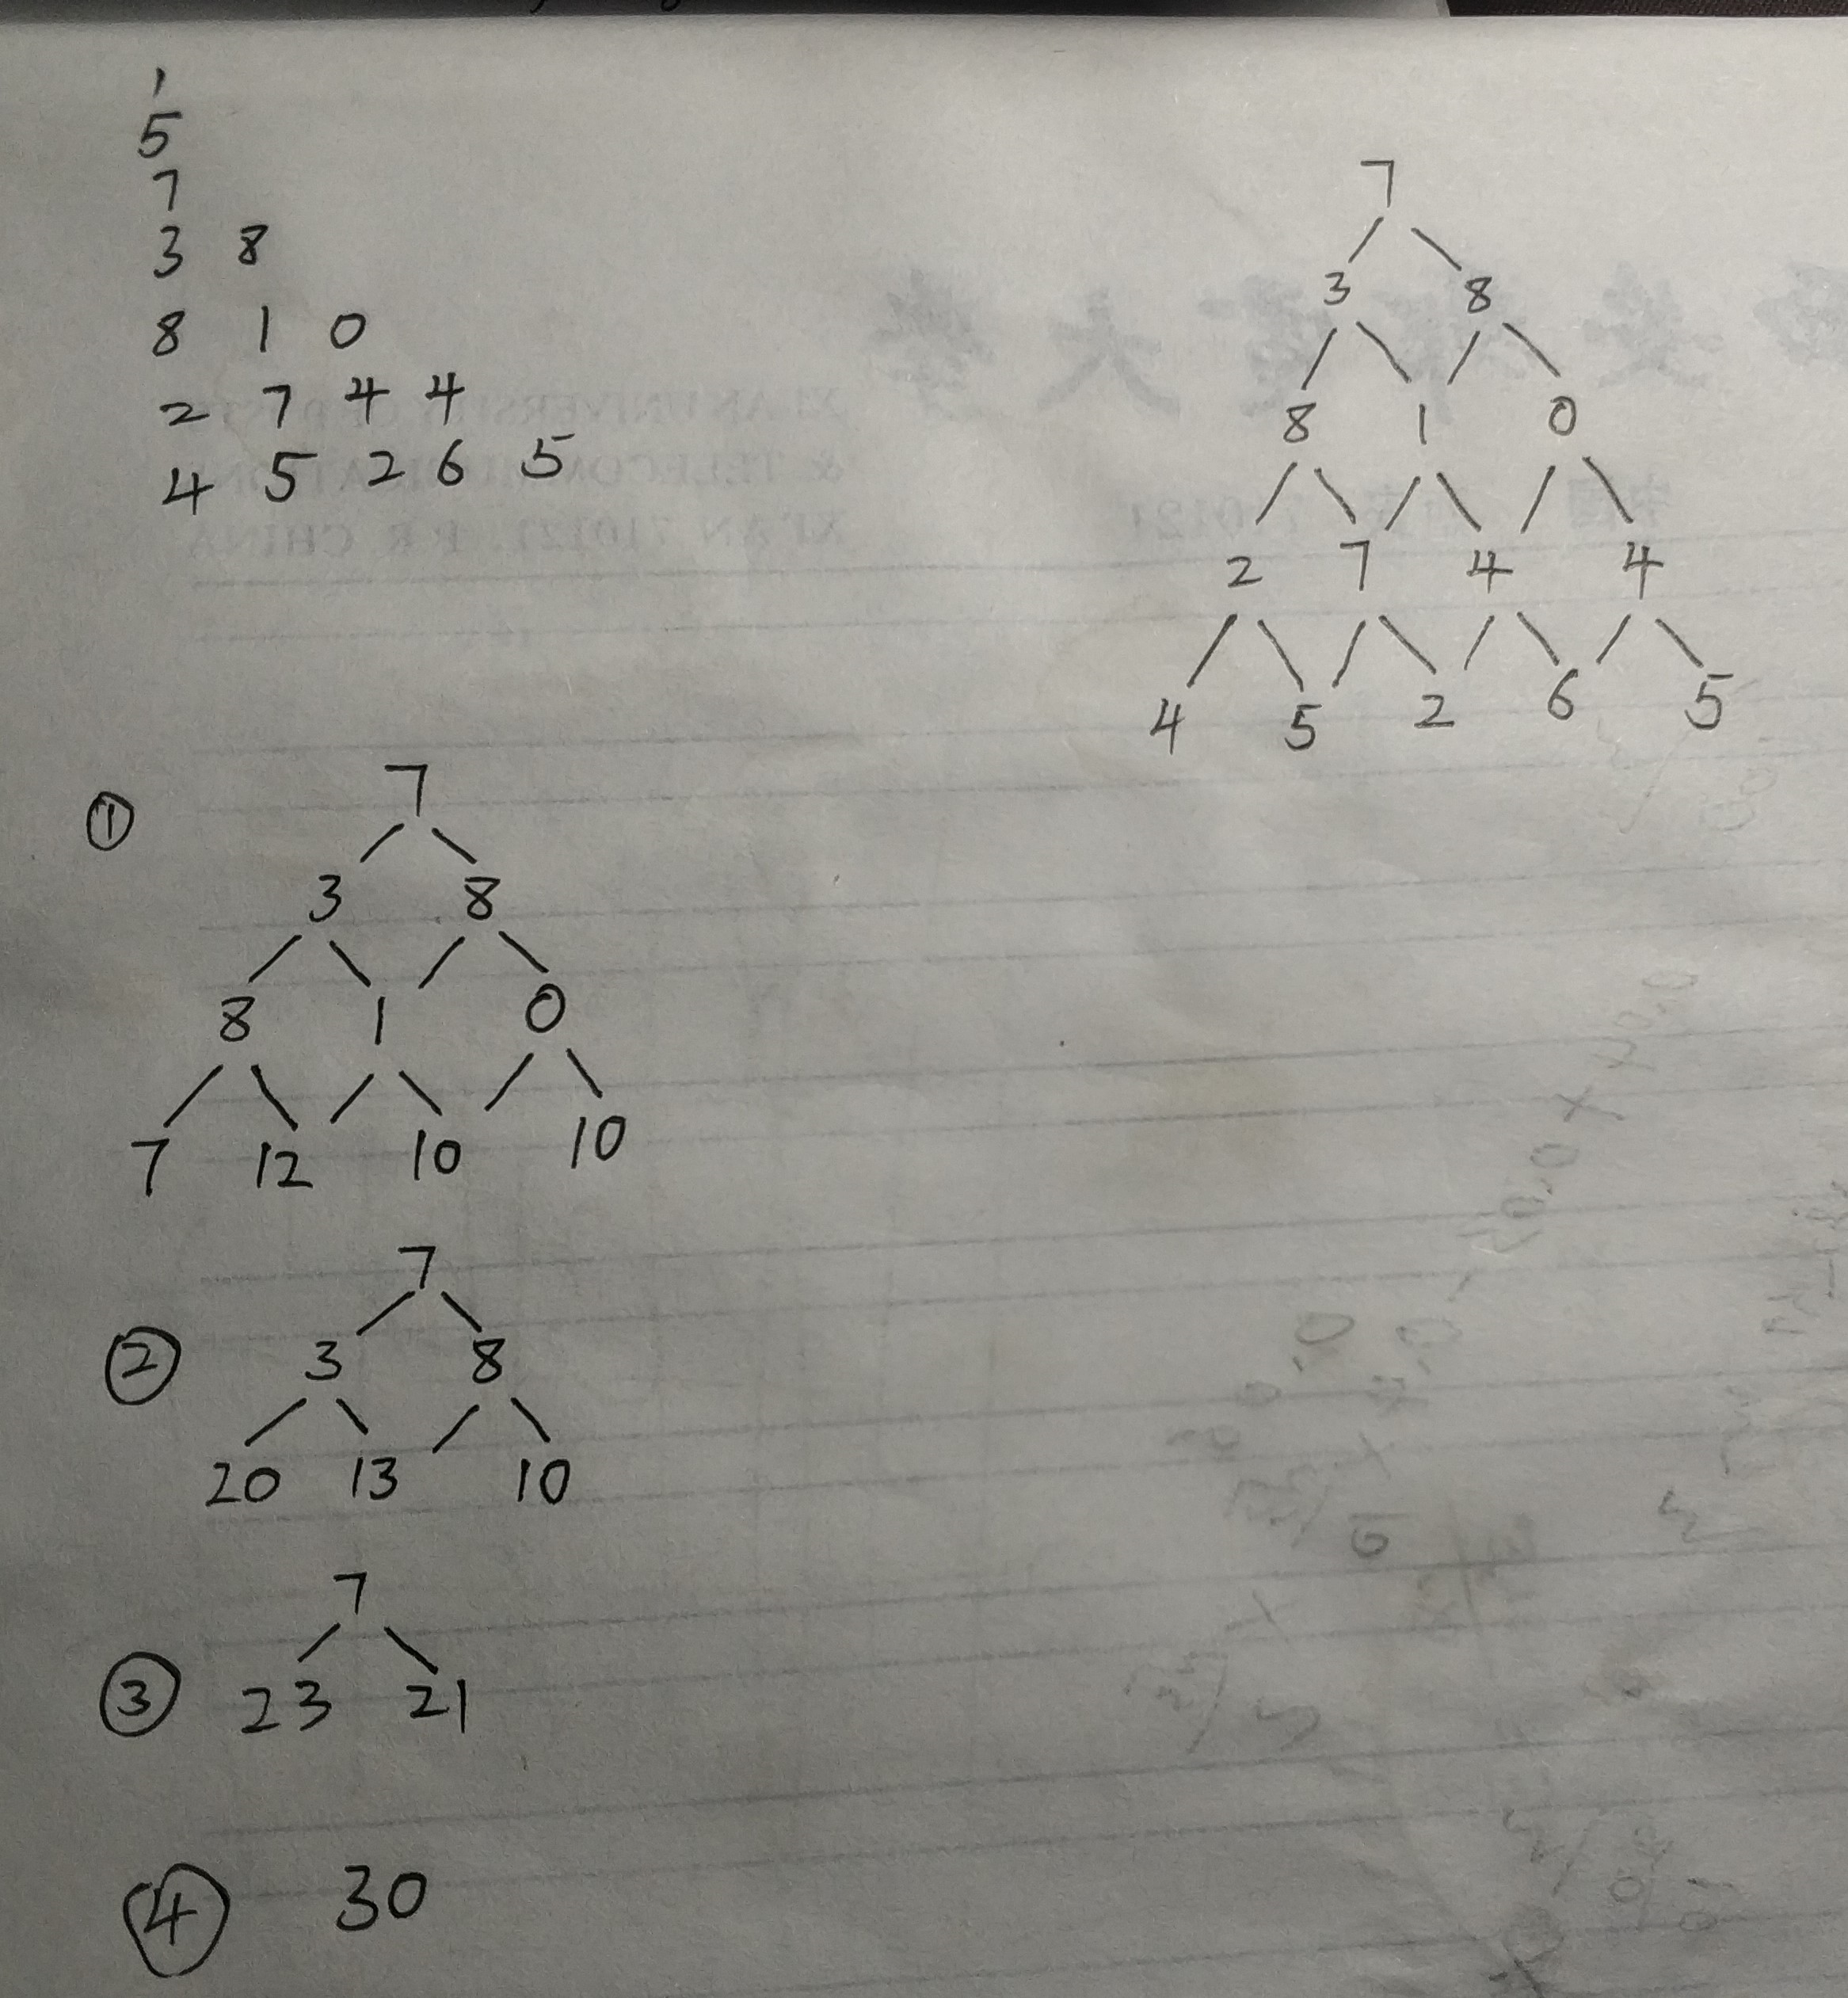 5
7
3 8
8 1 0
2 7 4 4
4 5 2 6 5
7
3 8
8 1 0
2 7 4 4
4 5 2 6 5
①
7
3 8
8 1 0
7 12 10 10
②
7
3 8
20 13 10
③
7
23 21
④ 30